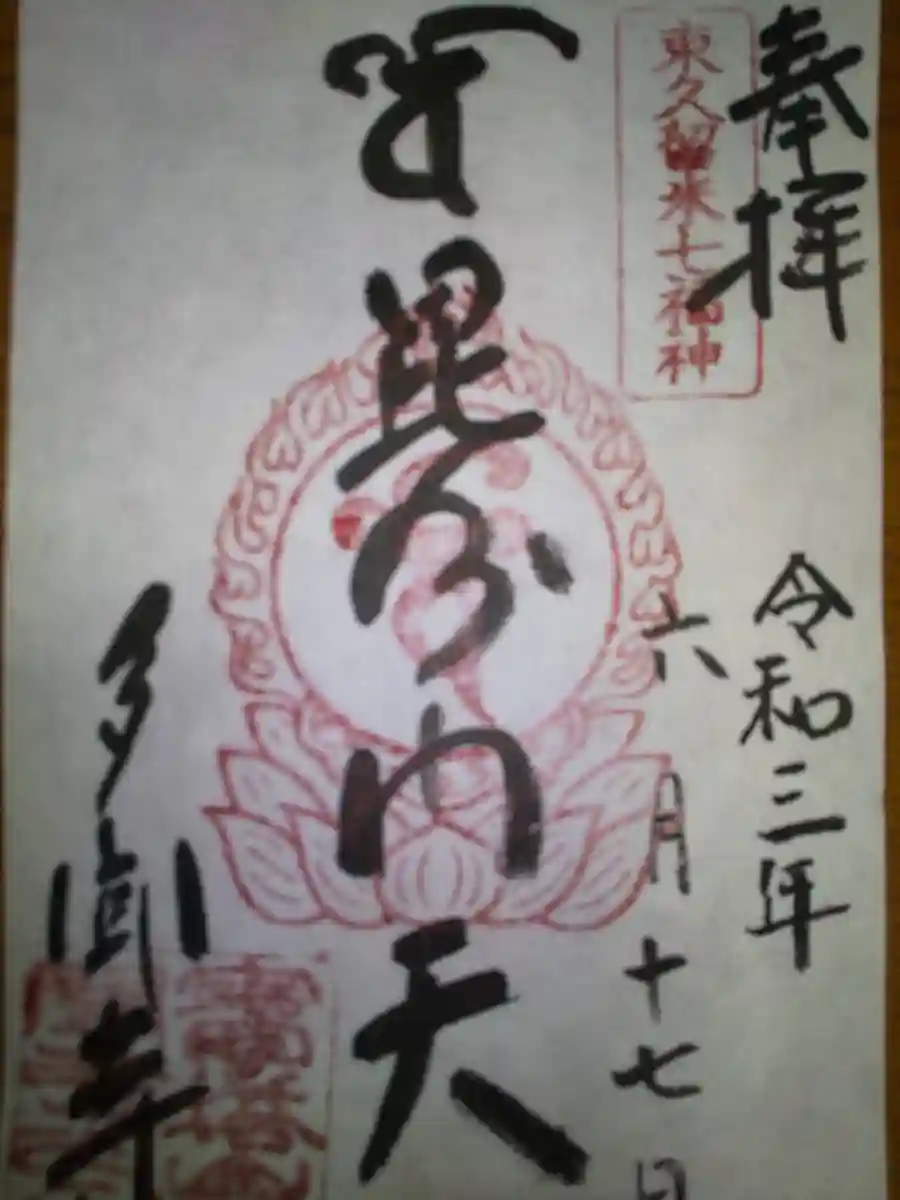 奉拝
東久留米七福神
令和三年
六月十七日
毘沙门天
多聞寺